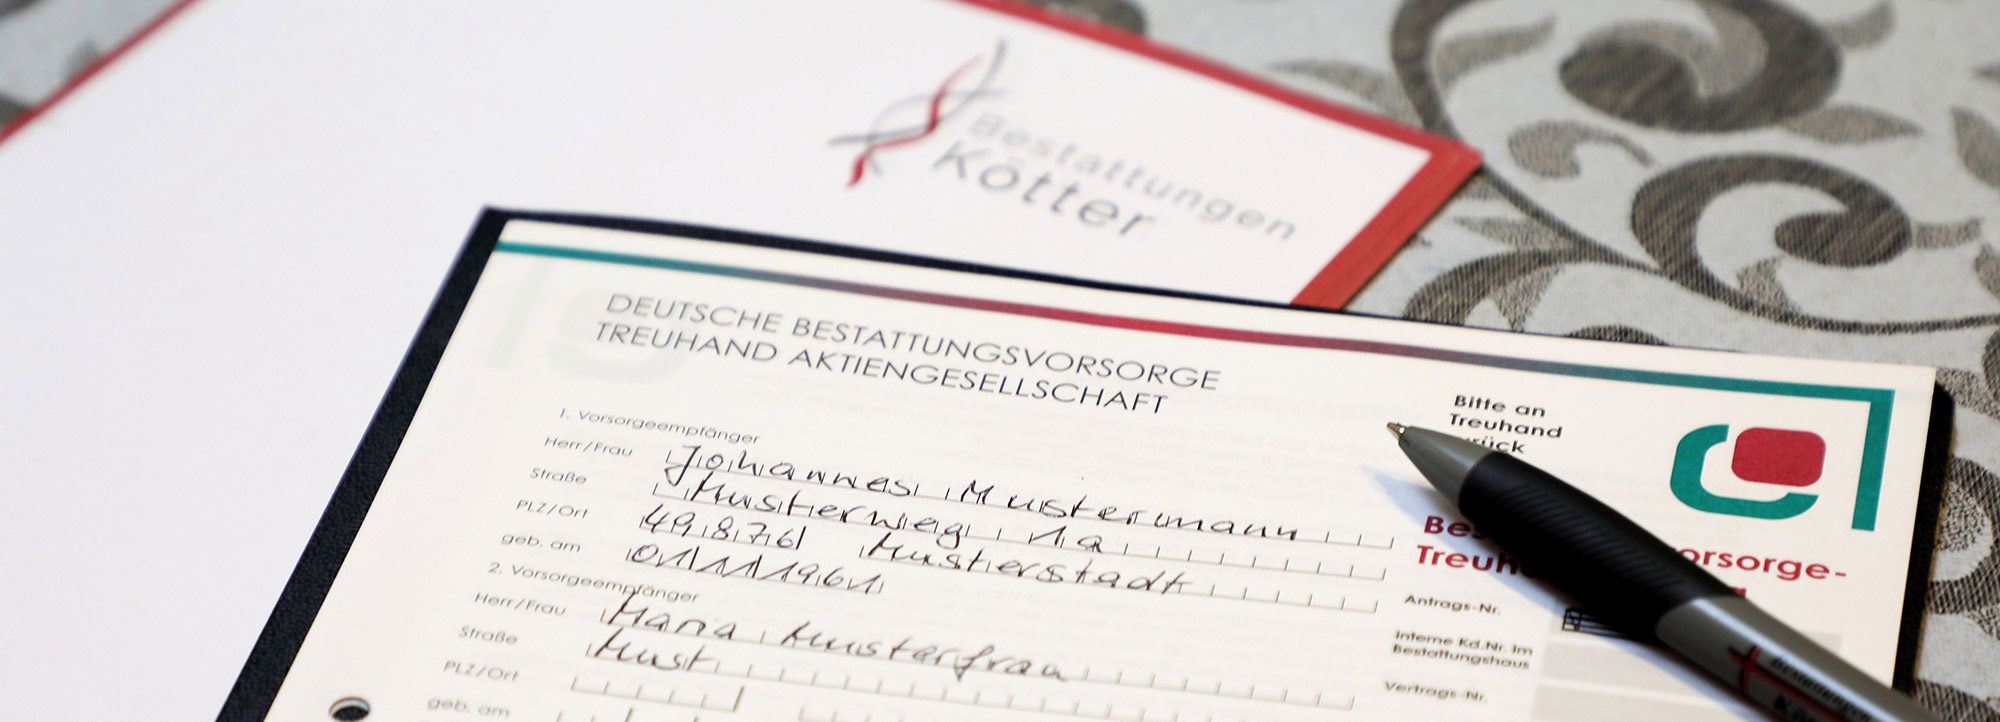 Bestattungen
Kötter
DEUTSCHE BESTATTUNGSVORSORGE
TREUHAND AKTIENGESELLSCHAFT
Bitte an
Treuhand
1. Vorsorgeempfänger
Herr/Frau Johannes Mustermann
Straße Musterweg 1a
PLZ/Ort 49876 Musterstadt
geb. am 01111961
2. Vorsorgeempfänger
Herr/Frau Maria Musterfrau
Straße Must
PLZ/Ort
geb. am
Antrags-Nr.
Interne Kd.Nr. im
Bestattungshaus
Vertrags-Nr.